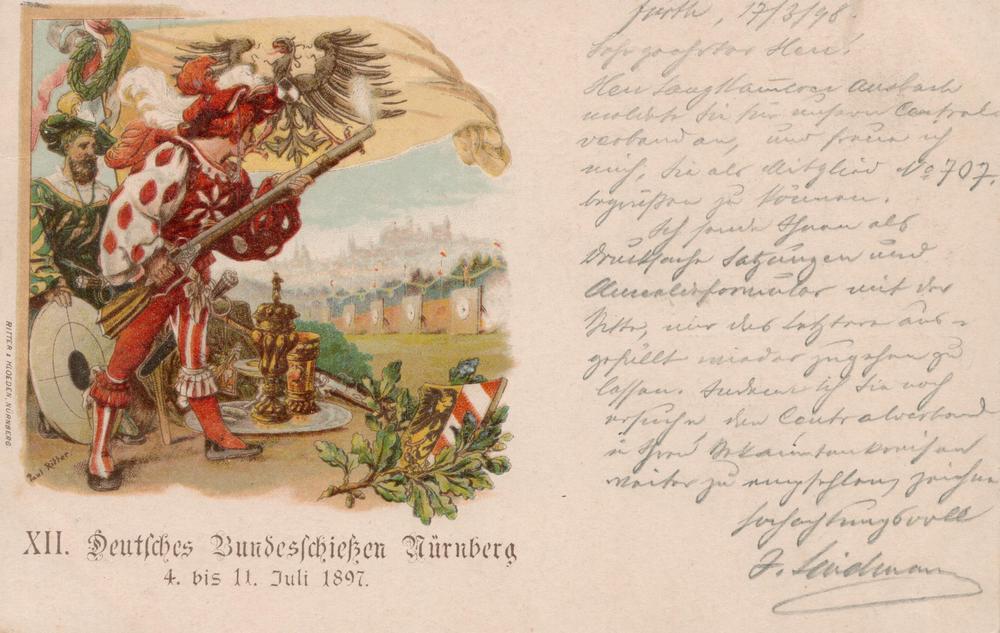 Fürth, 17/3/98.
Sehr geehrter Herr!
Herr Langhammerer Ansbach
meldete Sie für unseren Central-
verband an, und freue ich
mich, Sie als Mitglied No 707.
begrüßen zu können.
Ich sende Ihnen als
Drucksache Satzungen und
Anmeldeformular mit der
Bitte, mir das letztere aus-
gefüllt wieder zugehen zu
lassen. Indem ich Sie noch
ersuche den Centralverband
in Ihren Bekanntenkreisen
weiter zu empfehlen, zeichne
hochachtungsvoll
J.
RITTER & KLOEDEN, NÜRNBERG
Paul Ritter.
XII. Deutſches Bundesſchießen Nürnberg
4. bis 11. Juli 1897.